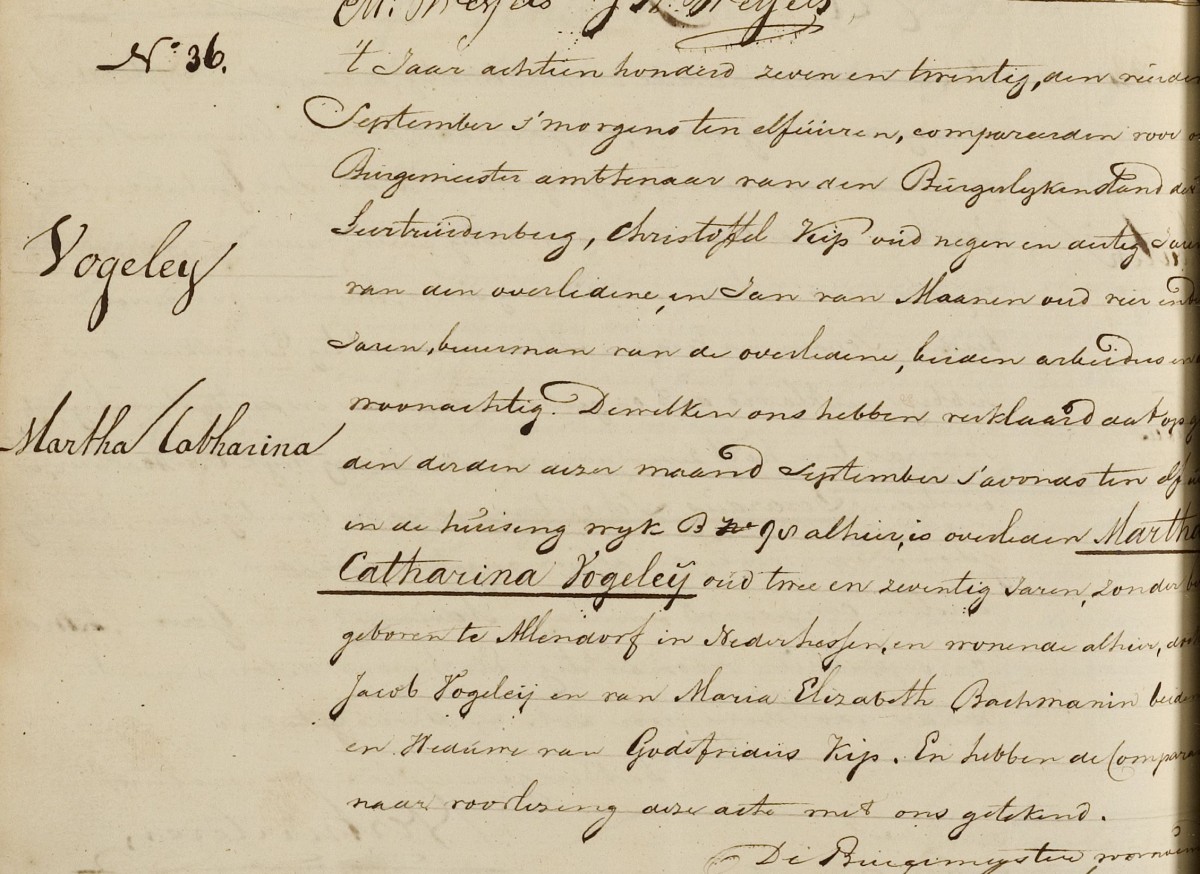 M: Weijers J W: Weijers
N.° 36.
't Jaar achtien honderd zeven en twentig, den vierden
September s'morgens ten elf uuren, compareerden voor
Burgemeester ambtenaar van den Burgerlyken stand der
Geertruidenberg, Christoffel Kip oud negen en dertig Jaren
van den overledene, en Jan van Maanen oud vier en
Vogeley
Jaren, buurman van de overledene, beiden arbeiders en
woonachtig. Dewelken ons hebben verklaard dat op
Martha Catharina
den derden dezer maand September s'avonds ten elf
in de huising wyk B N.° 98 alhier, is overleden Martha
Catharina Vogeleÿ oud twee en zeventig Jaren, zonder
geboren te Allendorf in Nederhessen, en wonende alhier,
Jacob Vogeleij en van Maria Elizabeth Bachmanin
en Weduwe van Godefridus Kip. En hebben de
naar voorlezing deze acte met ons getekend.
De Burgemeyster voornoemd